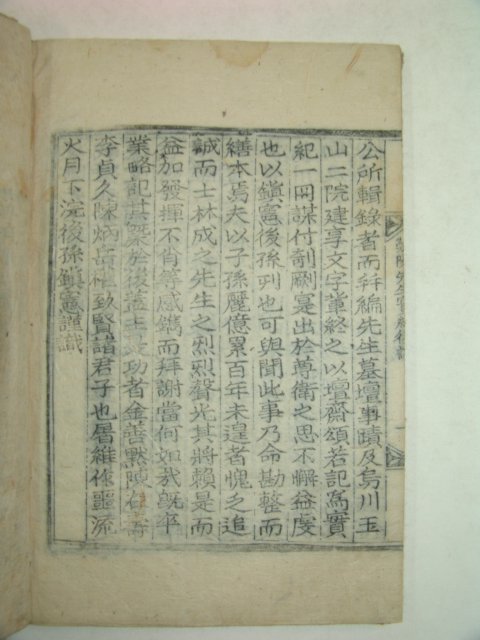 公所輯錄者而幷編先生墓壇事蹟及烏川玉
山二院建享文字輩終之以壇齋頌若記爲實
紀一冊謀付剞劂寔出於尊衛之思不懈益虔
也以鎭憲後孫列也可與聞此事乃命勘整而
繕本焉夫以子孫麗億累百年未遑者愧之追
誠而士林成之先生之烈烈聲光其將賴是而
益加發揮不肖等感鐫而拜謝當何如哉旣卒
業略記其槩於後這士 功者金善默陳
李貞久陳炳 權致賢諸君子也屠維作噩流
火月下浣後孫鎭憲謹識
先生實